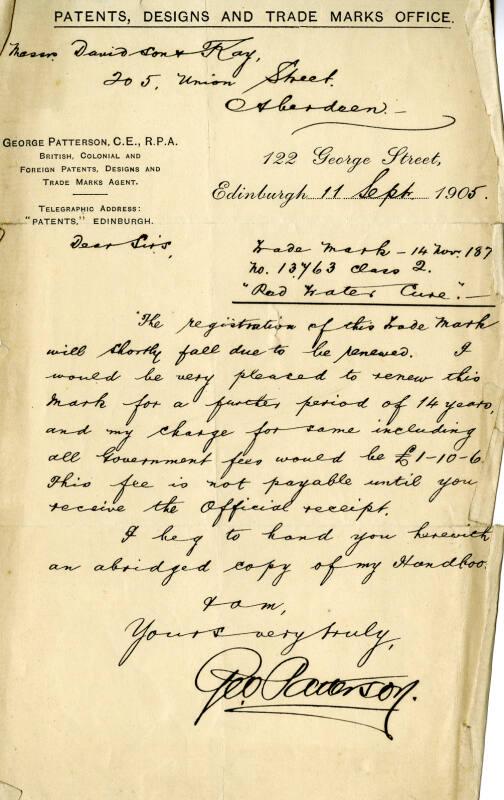 PATENTS, DESIGNS AND TRADE MARKS OFFICE.
Messrs Davidson & Kay,
205, Union Street.
Aberdeen.—
GEORGE PATTERSON, C.E., R.P.A.
BRITISH, COLONIAL AND
FOREIGN PATENTS, DESIGNS AND
TRADE MARKS AGENT.
TELEGRAPHIC ADDRESS:
"PATENTS," EDINBURGH.
122 George Street,
Edinburgh 11 Sept. 1905.
Dear Sirs,
Trade Mark – 14 Nov. 187
No. 13763 Class 2.
"Red Water Cure".—
The registration of this Trade Mark
will shortly fall due to be renewed. I
would be very pleased to renew this
Mark for a further period of 14 years
and my charge for same including
all Government fees would be £1-10-6.
This fee is not payable until you
receive the Official receipt.
I beg to hand you herewith
an abridged copy of my Handboo
I am,
Yours very truly,
Geo. Patterson.